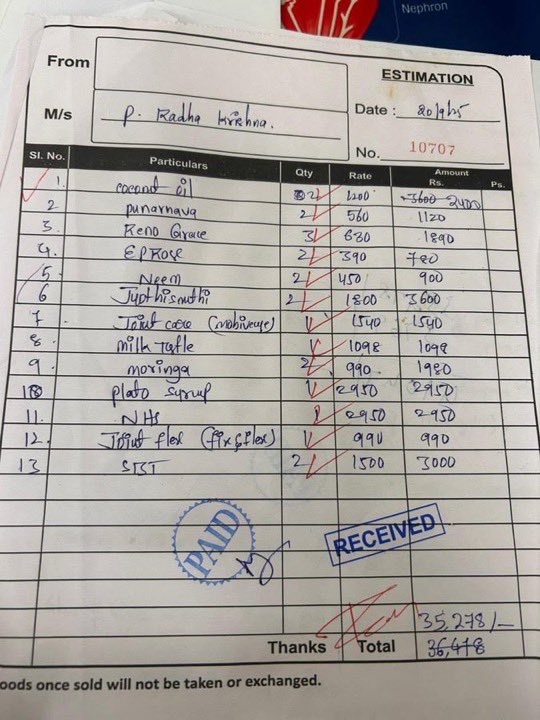 Nephron
From
ESTIMATION
M/s P. Radha Krishna.
Date : 20/9/25
No. 10707
Sl. No. Particulars Qty Rate Amount
Rs. Ps.
1. coconut oil 2 1200 3600 2400
2 punarnava 2 560 1120
3. Reno Grace 3 630 1890
4. 2 390 780
5. Neem 2 450 900
6 2 1800 3600
7. Joint care 1 1540 1540
8. milk 1 1098 1098
9. moringa 2 990 1980
10 plato syrup 1 2950 2950
11. NHS 1 2950 2950
12. Joint flex (fix & flex) 1 990 990
13 2 1500 3000
PAID
RECEIVED
35,278/-
Thanks Total 36,478
oods once sold will not be taken or exchanged.